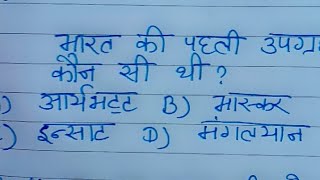 भारत की पहली
कौन सी थी ?
आर्यभट्ट B) भास्कर
इन्साट D) मंगलयान